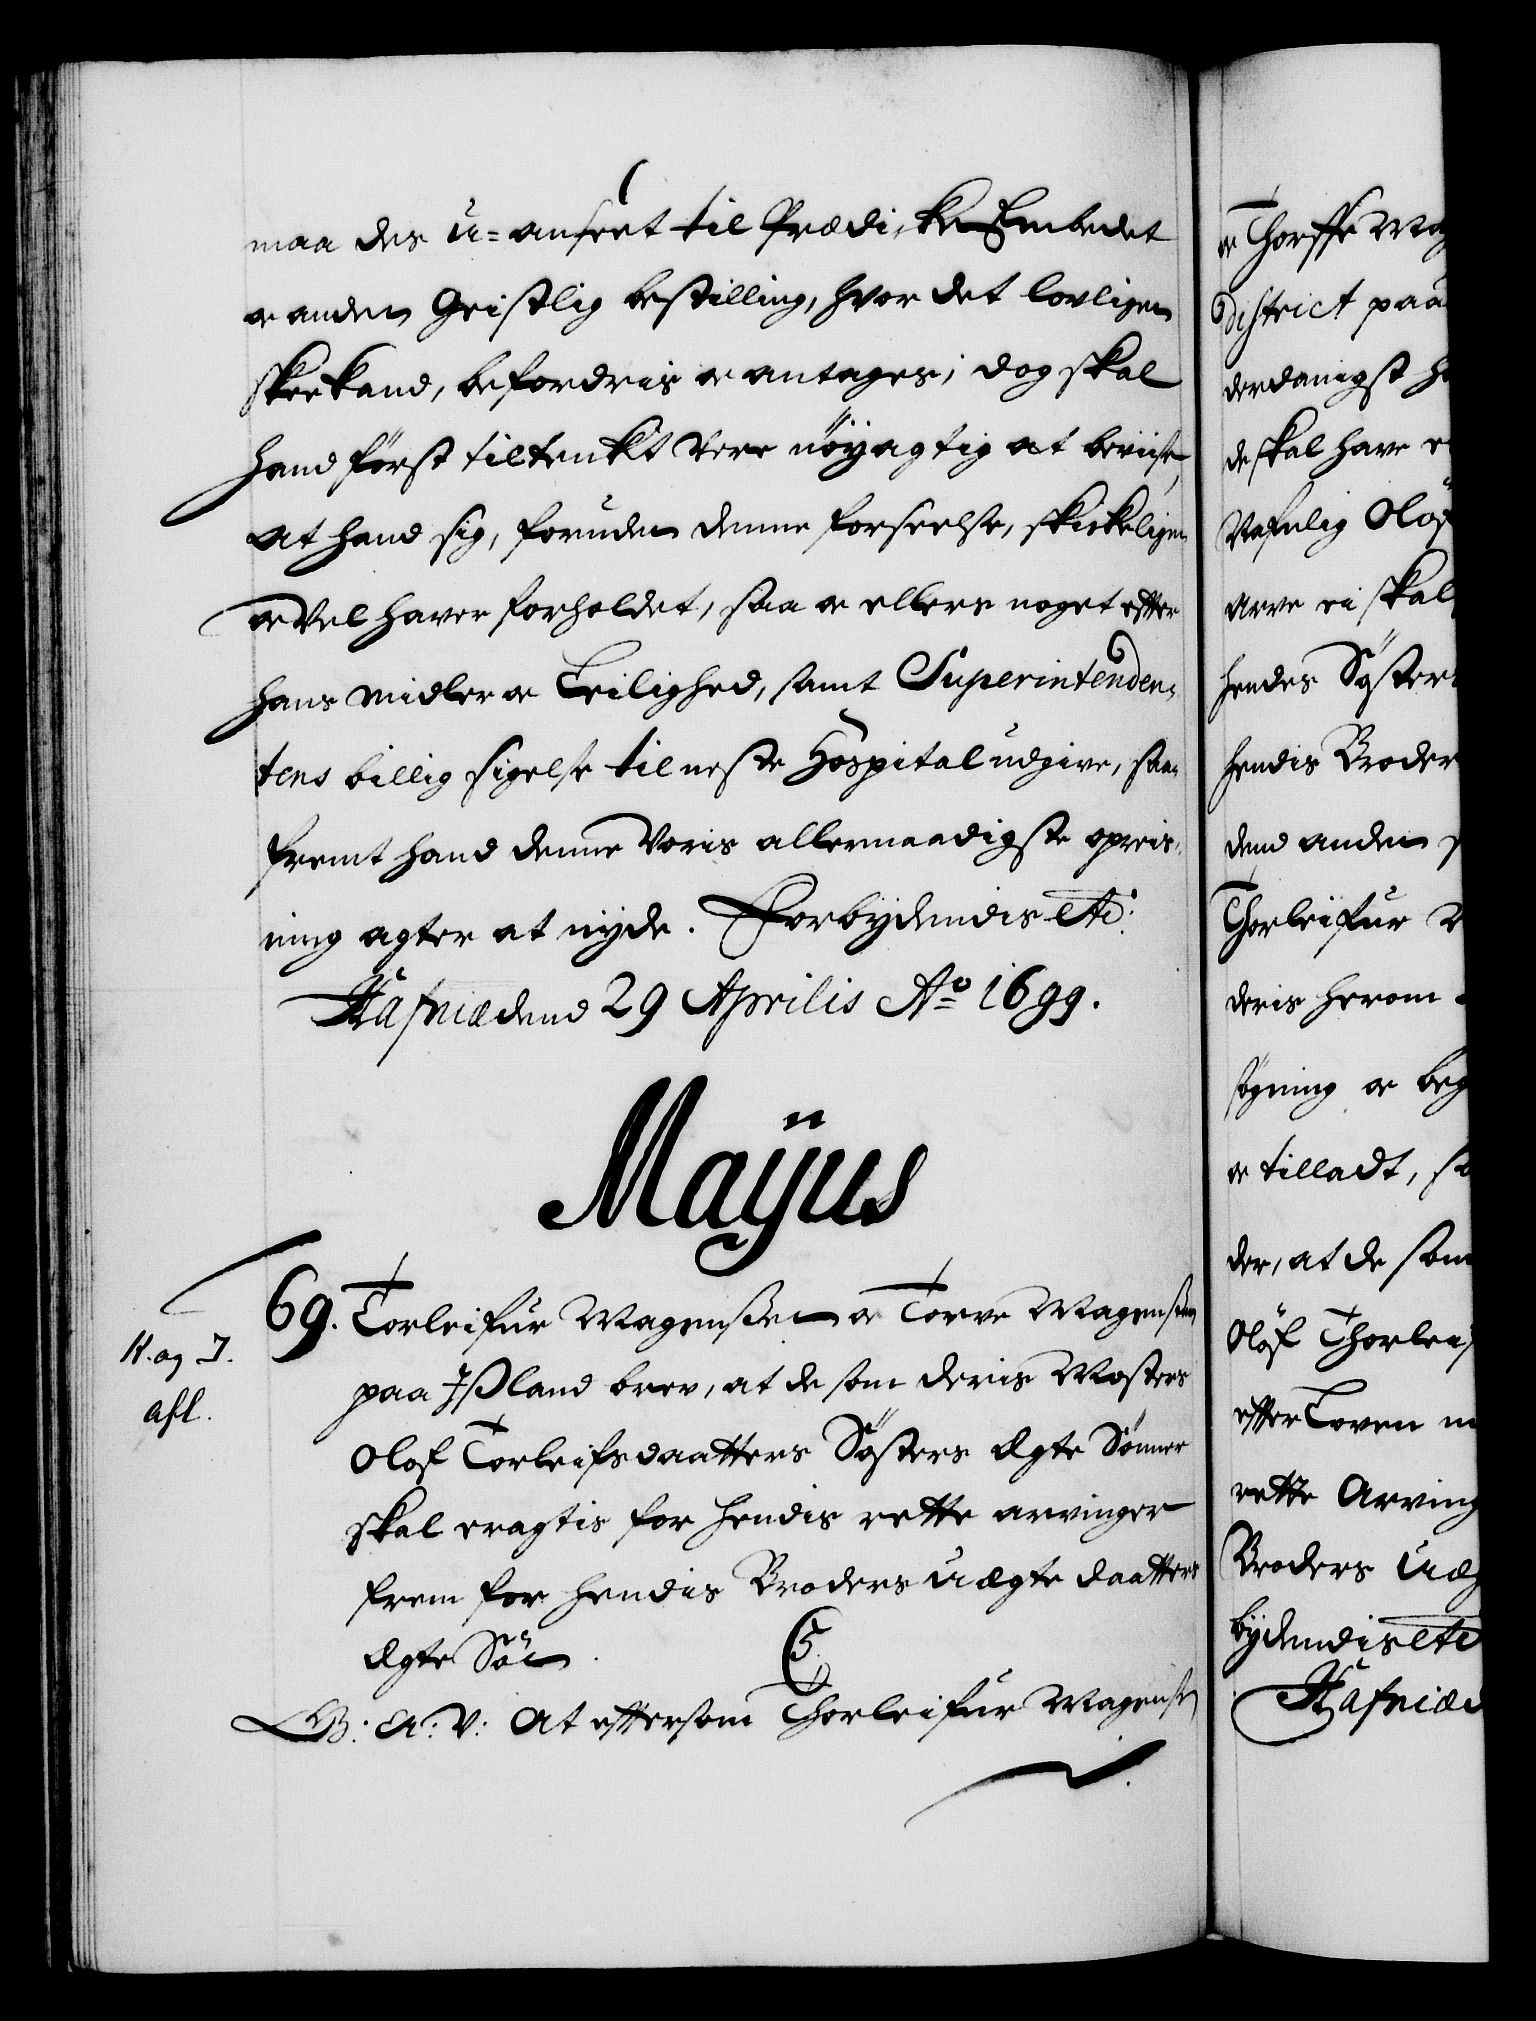 maa des u=anseet til Prædike Embedet
og anden Geistlig bestilling, hvor det lovligen
skee kand, befordris og antages; dog skal
hand först tiltenkt vere nöyagtig at beviise,
at hand sig, foruden denne forseelse, skickeligen
og vel haver forholdet, saa og ellers noget efter
hans midler og Leilighed, samt Superintenden-
tens billig sigelse til neste Hospital udgive, saa-
fremt hand denne Voris allernaadigste opreis-
ning agter at nyde. Forbydendis etc:
Hafniæ dend 29 Aprilis Ao 1699.
Mayus
69. Torleifur Magensen og Torve Magensen
paa Jßland brev, at de som deris Mosters
Olof Torleifsdaatters Sösters Ægte Sönner
skal eragtis for hendis rette arvinger
frem for hendis Broders uægte daatters
Ægte Sön.
C5.
G: A: V: At eftersom Thorleifur Magens:
K. og J.
afl.
og Thorffe Mag
District paa
derdanigst
de skal have
Olof
arve ei skal
hendes Söster
hendis Broder
dend anden
Thorleifur
deris herom
søgning og beg
og tilladt,
der, at de som
Olöf Thorlei
efter Loven
rette Arving
Broders uæg
bydendis etc
Hafniæ